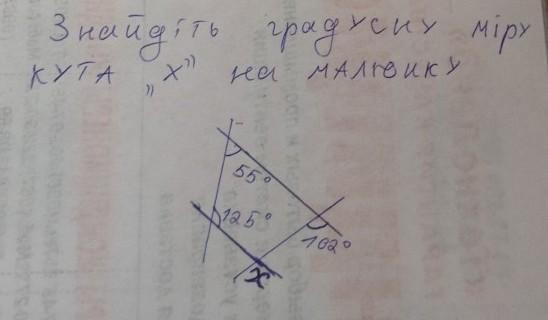 Знайдіть градусну міру
кута „х” на малюнку
55°
125°
102°
x